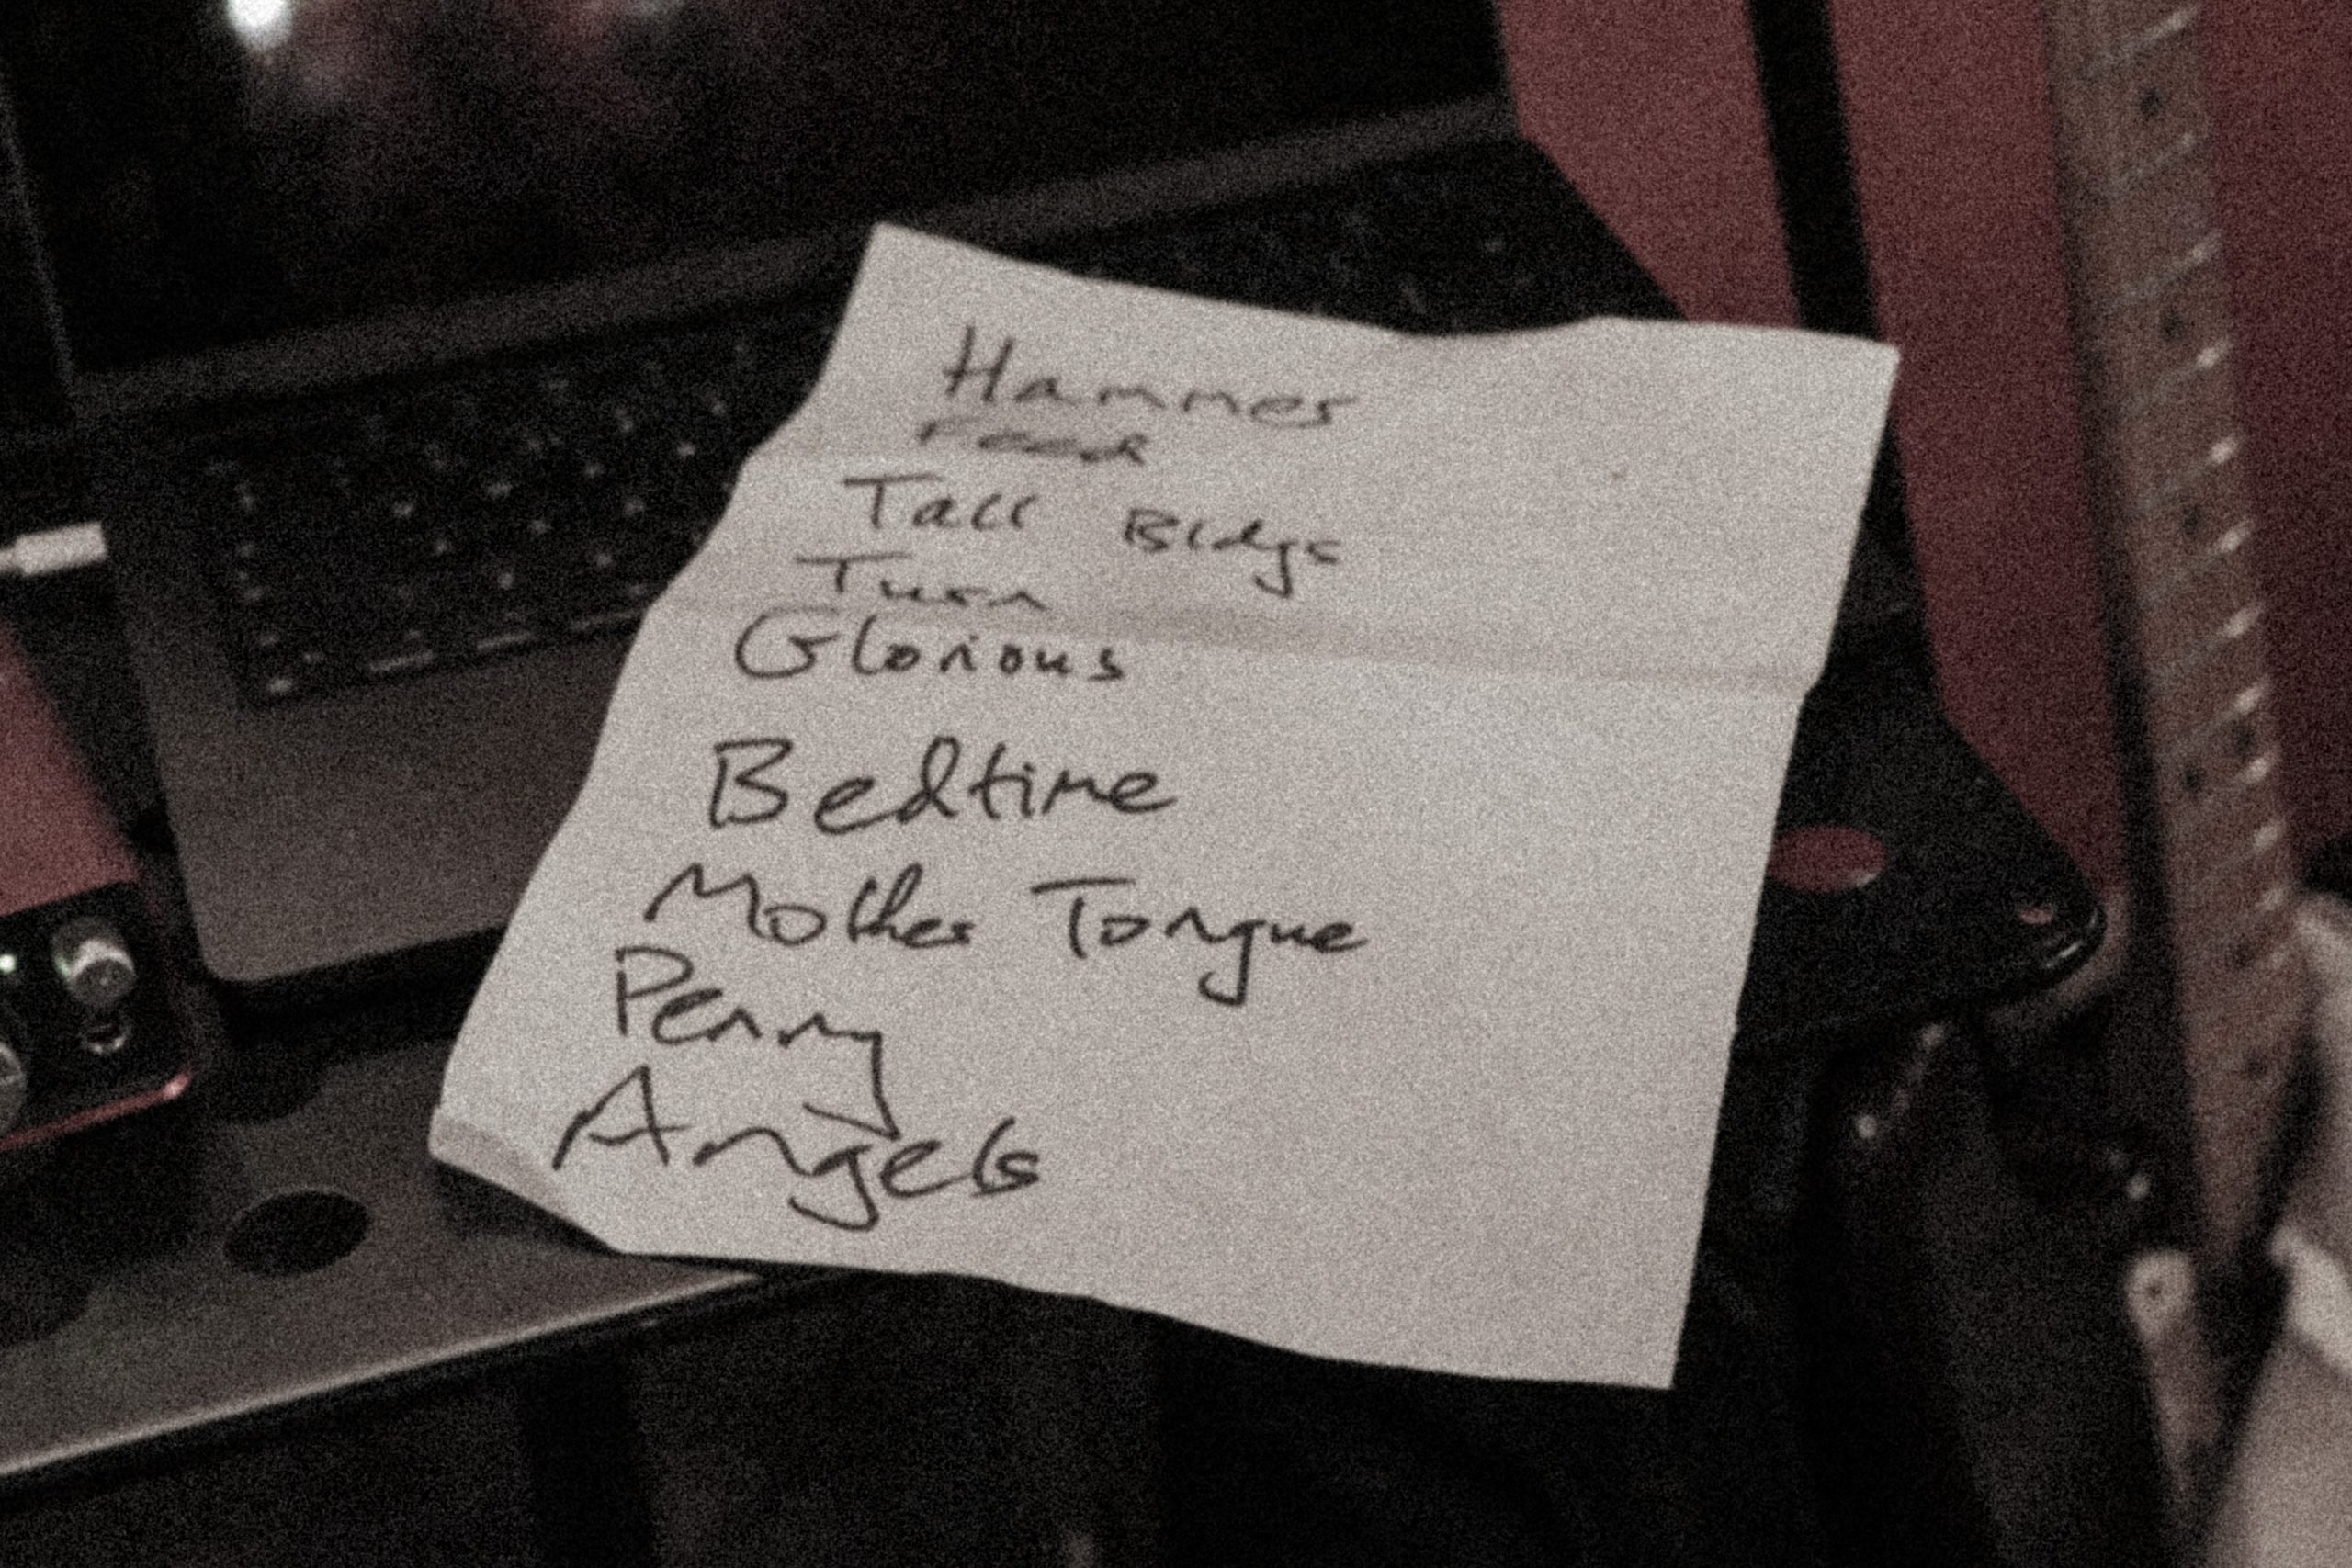 Hammer
Feed
Tall Bldgs
Turn
Glorious
Bedtime
Mother Tongue
Penny
Angels